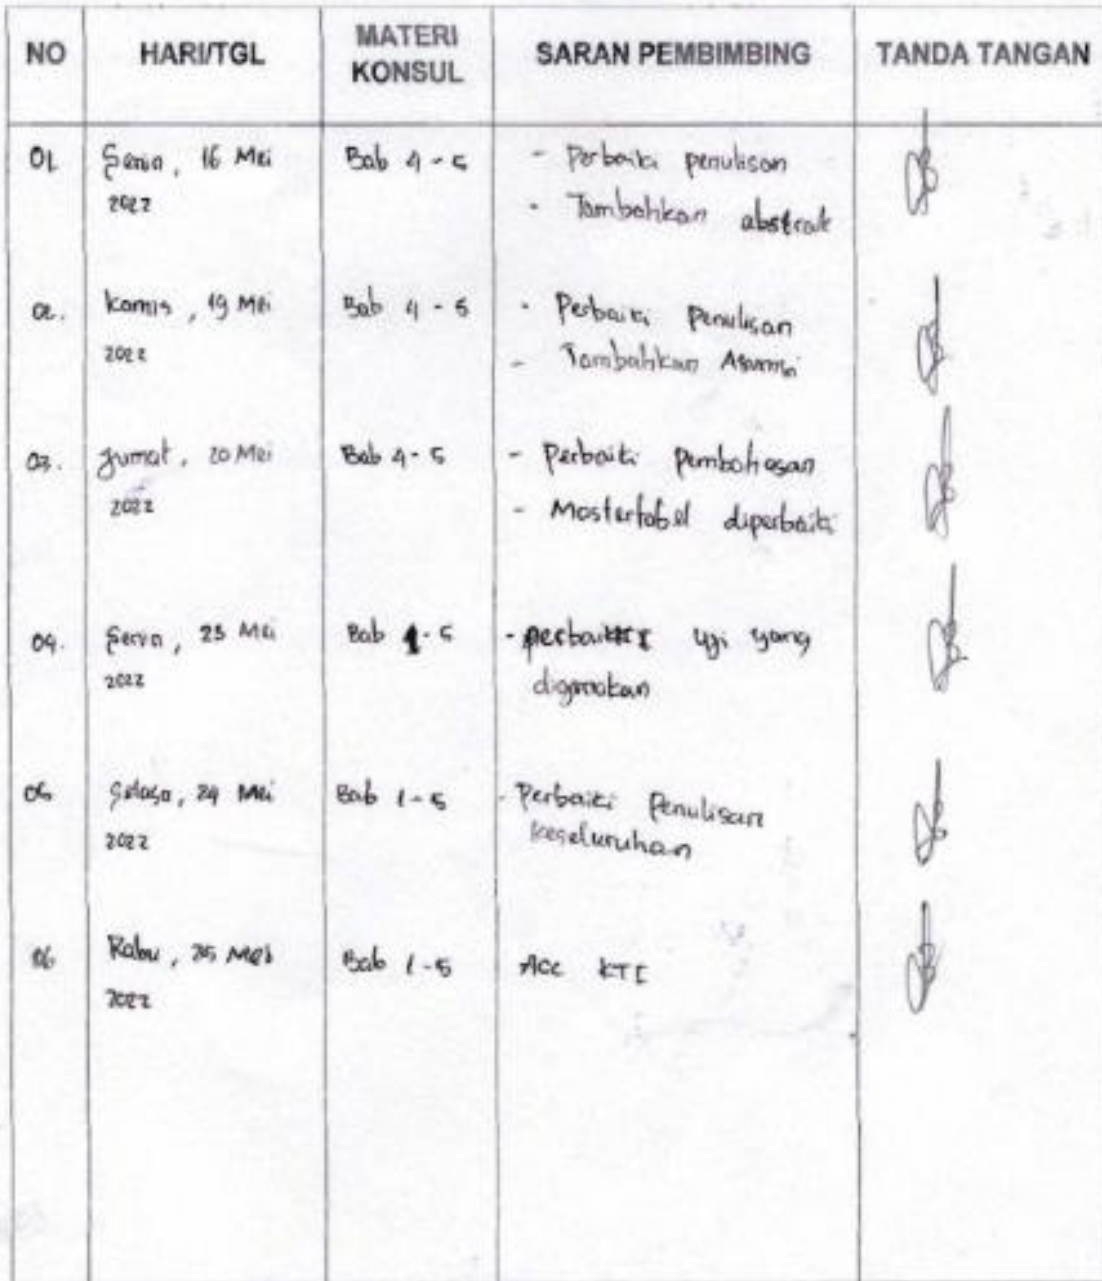 NO HARI/TGL MATERI KONSUL SARAN PEMBIMBING TANDA TANGAN
01 Senin, 16 Mei Bab 4 - 5 - Perbaiki penulisan
2022 - Tambahkan abstrak
02. Kamis, 19 Mei Bab 4 - 5 - Perbaiki Penulisan
2022 - Tambahkan Asumsi
03. Jumat, 20 Mei Bab 4 - 5 - Perbaiki Pembahasan
2022 - Mastertabel diperbaiki
04. Senin, 23 Mei Bab 1 - 5 - perbaiki uji yang
2022 digunakan
05 Selasa, 24 Mei Bab 1 - 5 - Perbaiki Penulisan
2022 keseluruhan
06 Rabu, 25 Mei Bab 1 - 5 Acc KTI
2022